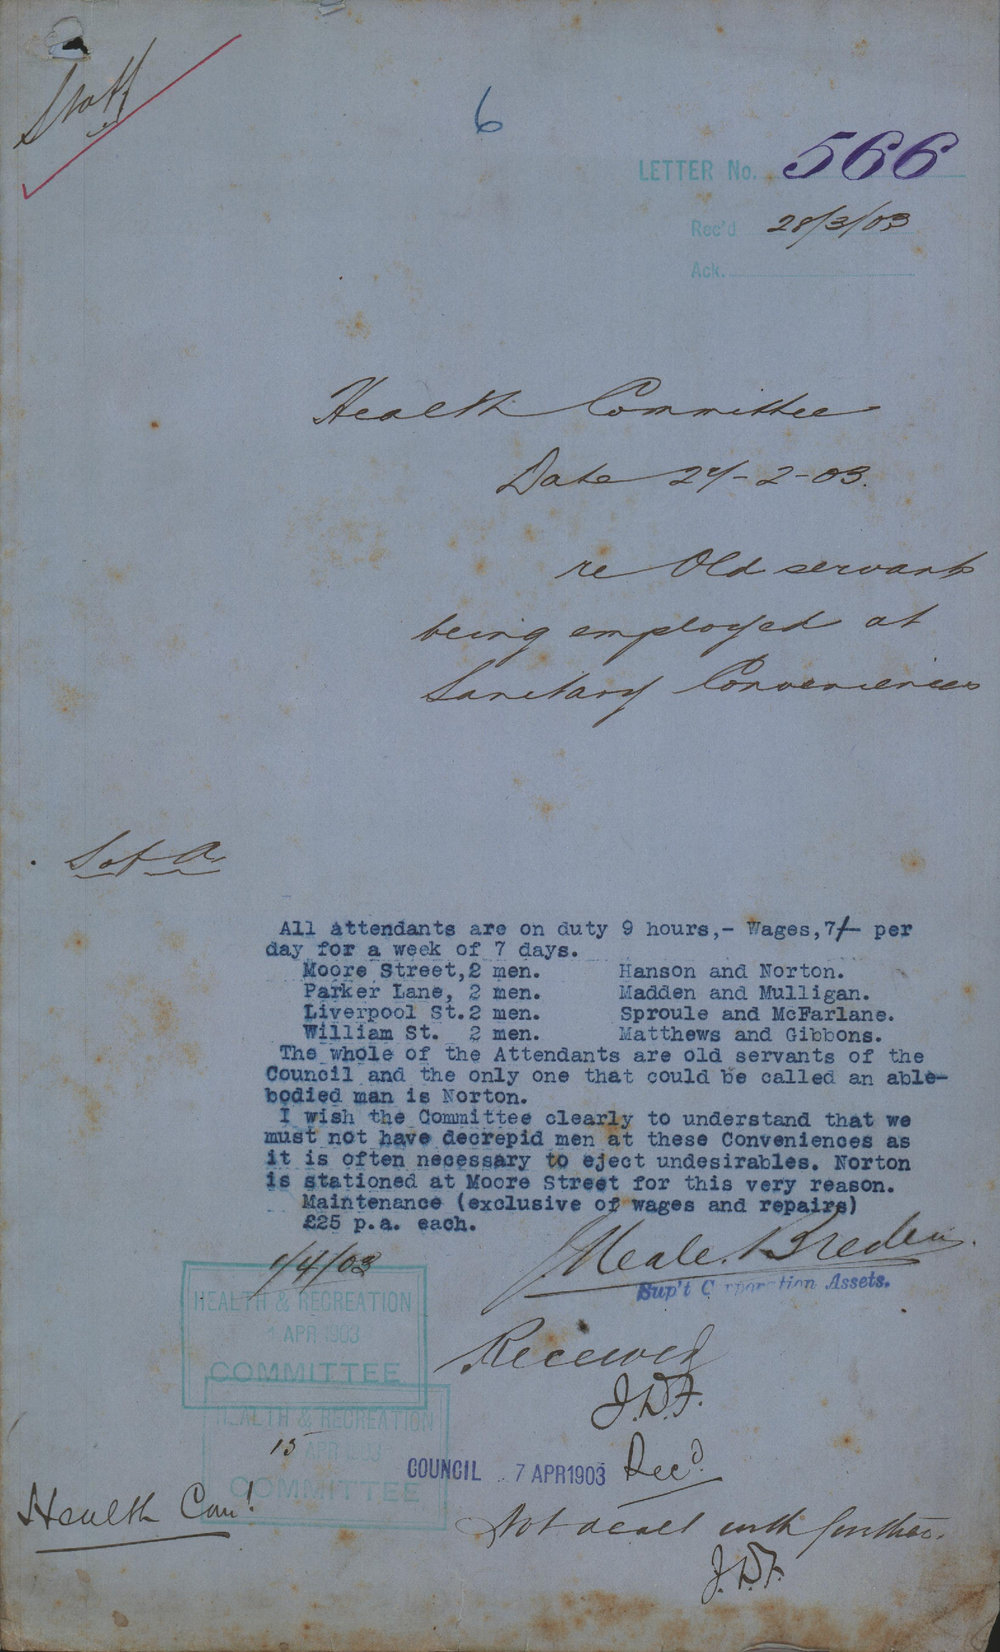 Staff
6
LETTER No. 566
Rec'd 28/3/03
Ack.
Health Committee
Date 27-2-03.
re Old servants
being employed at
Sanitary Conveniences
All attendants are on duty 9 hours,- Wages,7/- per
day for a week of 7 days.
Moore Street,2 men. Hanson and Norton.
Parker Lane, 2 men. Madden and Mulligan.
Liverpool St.2 men. Sproule and McFarlane.
William St. 2 men. Matthews and Gibbons.
The whole of the Attendants are old servants of the
Council and the only one that could be called an able-
bodied man is Norton.
I wish the Committee clearly to understand that we
must not have decrepid men at these Conveniences as
it is often necessary to eject undesirables. Norton
is stationed at Moore Street for this very reason.
Maintenance (exclusive of wages and repairs)
£25 p.a. each.
1/4/03
Neale. Breden.
Sup't Corporation Assets.
HEALTH & RECREATION
1 APR 1903
COMMITTEE
Received
J.D.F.
HEALTH & RECREATION
15 APR 1903
COMMITTEE
COUNCIL 7 APR 1903 Recd
Health Com!
Not dealt with further.
J.D.F.